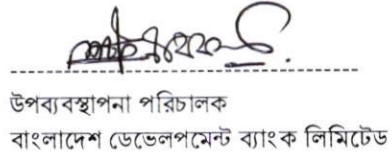 উপব্যবস্থাপনা পরিচালক
বাংলাদেশ ডেভেলপমেন্ট ব্যাংক লিমিটেড